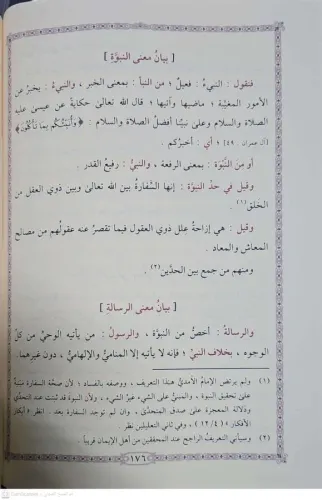 [ بيانُ معنى النبوَّة ]
فنقول : النبيءُ : فعيلٌ ؛ من النبأ : بمعنى الخبر ، والنبيءُ : يخبرُ عن
الأمور المغيَّبة ؛ ماضيها وآتيها ؛ قال الله تعالى حكايةً عن عيسى عليه
الصلاة والسلام وعلى نبيِّنا أفضلُ الصلاة والسلام : ﴿ وَأُنَبِّئُكُم بِمَا تَأْكُلُونَ ﴾
[آل عمران : ٤٩] ؛ أي : أخبرُكم .
أو مِنَ النَّبْوَة : بمعنى الرفعة ، والنبيُّ : رفيعُ القدر .
وقيل في حدِّ النبوَّة : إنها السِّفارةُ بين الله تعالى وبين ذوي العقل من
الخَلْقِ(١) .
وقيل : هي إزاحةُ علل ذوي العقول فيما تقصرُ عنه عقولُهم من مصالح
المعاش والمعاد .
ومنهم من جمع بين الحدَّين(٢) .
[ بيانُ معنى الرسالة ]
والرسالةُ : أخصُّ من النبوَّة ، والرسولُ : من يأتيه الوحيُ من كلِّ
الوجوه ، بخلاف النبيِّ ؛ فإنه لا يأتيه إلا المناميُّ والإلهاميُّ ، دون غيرهما .
(١) ولم يرتضِ الإمامُ الآمديُّ هذا التعريفَ ، ووصفه بالفساد ؛ لأن صحَّةَ السفارة مبنيَّةٌ
على تحقيق النبوة ، والمبنيُّ على الشيء غيرُ الشيء ، ولأن النبوة قد ثبتت عند التحدِّي
ودلالة المعجزة على صدق المتحدِّي ، وإن لم توجد السفارة بعد . انظر « أبكار
الأفكار » ( ١٢/٤ ) ، وفي ثاني التعليلين نظر .
(٢) وسيأتي التعريفُ الراجح عند المحققين من أهل الإيمان قريباً .
١٧٦